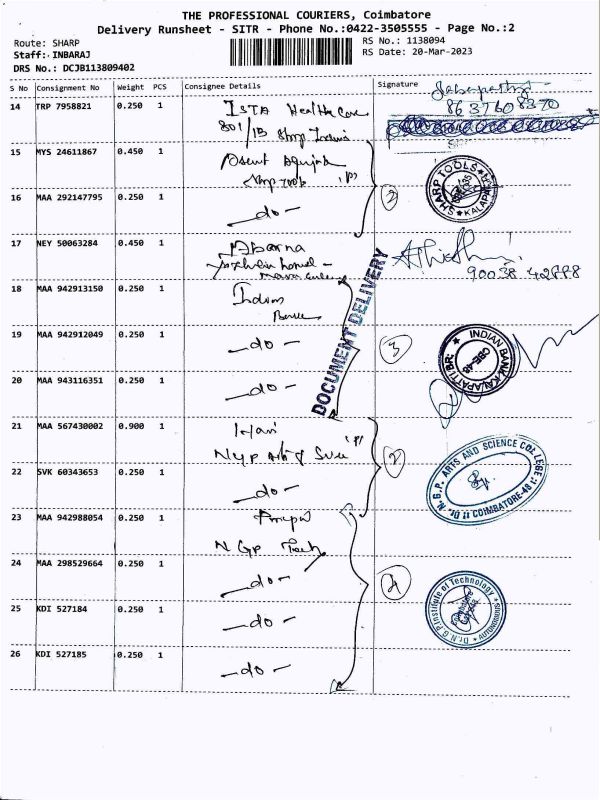 THE PROFESSIONAL COURIERS, Coimbatore
Delivery Runsheet - SITR - Phone No.:0422-3505555 - Page No.:2
Route: SHARP
RS No.: 1138094
Staff: INBARAJ
RS Date: 20-Mar-2023
DRS No.: DCJB113809402
S No Consignment No Weight PCS Consignee Details Signature
14 TRP 7958821 0.250 1 ISTA Health Care
801/1B Sharp
8637608370
15 MYS 24611867 0.450 1
Sharp Tools "P"
SHARP TOOLS
2
16 MAA 292147795 0.250 1 -do-
17 NEY 50063284 0.450 1 Abarna
18 MAA 942913150 0.250 1 Indian
DOCUMENT DELIVERY
19 MAA 942912049 0.250 1 -do-
3
INDIAN BANK, KALAPATTI BR.
20 MAA 943116351 0.250 1 -do-
21 MAA 567430002 0.900 1 Hari
NGP Arts & "P"
2
N.G.P. ARTS AND SCIENCE COLLEGE
COIMBATORE-48
22 SVK 60343653 0.250 1 -do-
23 MAA 942988054 0.250 1
N GP Tech
24 MAA 298529664 0.250 1 -do-
4
Dr.N.G.P.Institute of Technology
AUTONOMOUS
25 KDI 527184 0.250 1 -do-
26 KDI 527185 0.250 1 -do-